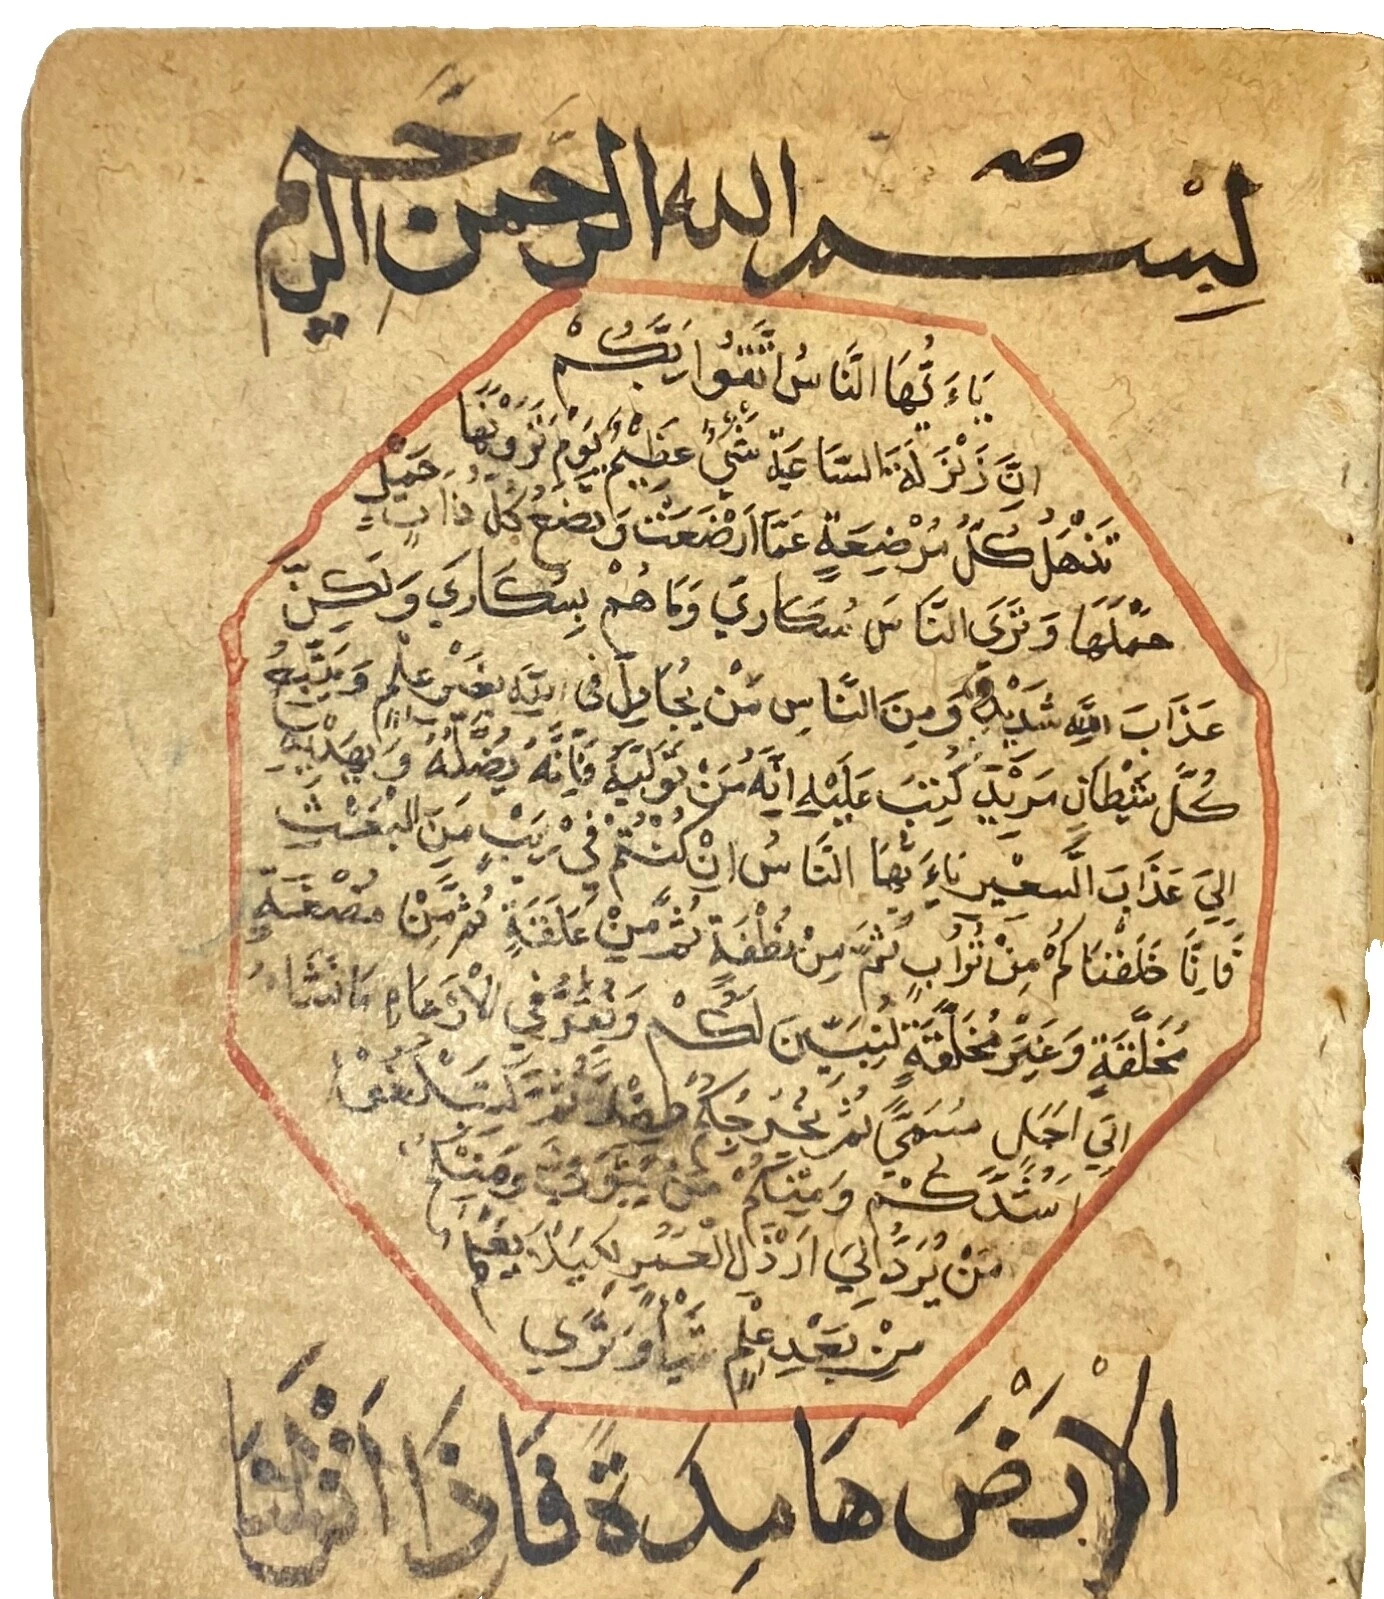 بسم الله الرحمن الرحيم
يَاءَيُّهَا النَّاسُ اتَّقُوا رَبَّكُمْ
اِنَّ زَلْزَلَةَ السَّاعَةِ شَيْءٌ عَظِيمٌ يَوْمَ تَرَوْنَهَا
تَذْهَلُ كُلُّ مُرْضِعَةٍ عَمَّا اَرْضَعَتْ وَتَضَعُ كُلُّ ذَاتِ حَمْلٍ
حَمْلَهَا وَتَرَى النَّاسَ سُكَارَي وَمَا هُمْ بِسُكَارَي وَلَكِنَّ
عَذَابَ اللَّهِ شَدِيدٌ وَمِنَ النَّاسِ مَنْ يُجَادِلُ فِي اللَّهِ بِغَيْرِ عِلْمٍ وَيَتَّبِعُ
كُلَّ شَيْطَانٍ مَرِيدٍ كُتِبَ عَلَيْهِ اَنَّهُ مَنْ تَوَلَّيهُ فَاَنَّهُ يُضِلُّهُ وَيَهْدِيهِ
اِلَيَ عَذَابَ السَّعِيرِ يَاءَيُّهَا النَّاسُ اِنْ كُنْتُمْ فِي رَيْبٍ مِنَ الْبَعْثِ
فَاِنَّا خَلَقْنَاكُمْ مِنْ تُرَابٍ ثُمَّ مِنْ نُطْفَةٍ ثُمَّ مِنْ عَلَقَةٍ ثُمَّ مِنْ مُضْغَةٍ
مُخَلَّقَةٍ وَغَيْرِ مُخَلَّقَةٍ لِنُبَيِّنَ لَكُمْ وَنُقِرُّ فِي الْاَرْحَامِ مَا نَشَاءُ
اِلَيَ اَجَلٍ مُسَمًّي ثُمَّ نُخْرِجُكُمْ طِفْلًا ثُمَّ لِتَبْلُغُوا
اَشُدَّكُمْ وَمِنْكُمْ مَنْ يُتَوَفَّي وَمِنْكُمْ
مَنْ يُرَدُّ اِلَيَ اَرْذَلِ الْعُمُرِ لِكَيْلَا يَعْلَمَ
مِنْ بَعْدِ عِلْمٍ شَيْئًا وَتَرَي
الْاَرْضَ هَامِدَةً فَاِذَا اَنْزَلْنَا